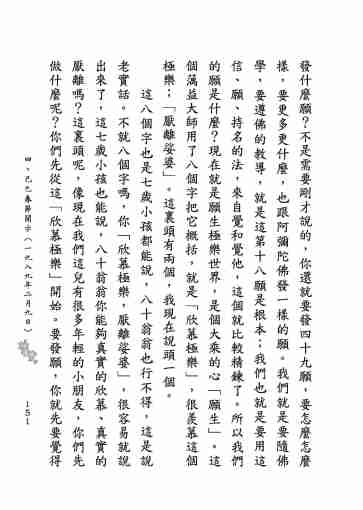 發什麼願？不是需要剛才說的，你還就要發四十九願，要怎麼怎麼
樣，要更多更什麼，也跟阿彌陀佛發一樣的願。我們就是要隨佛
學，要遵佛的教導，就是這第十八願是根本；我們也就是要用這
信、願、持名的法，來自覺和覺他，這個就比較精鍊了。所以我們
的願是什麼？現在就是願生極樂世界，是個大乘的心「願生」。這
個蕅益大師用了八個字把它概括，就是「欣慕極樂」，很羨慕這個
極樂；「厭離娑婆」。這裏頭有兩個，我現在說頭一個。
這八個字也是七歲小孩都能說，八十翁翁也行不得，這是說
老實話。不就八個字嗎，你「欣慕極樂，厭離娑婆」，很容易就說
出來了，這七歲小孩也能說，八十翁翁你能夠真實的欣慕、真實的
厭離嗎？這裏頭呢，像現在我們這兒有很多年輕的小朋友，你們先
做什麼呢？你們先從這「欣慕極樂」開始。要發願，你就先要覺得
四、己巳春節開示（一九八九年二月九日）
151